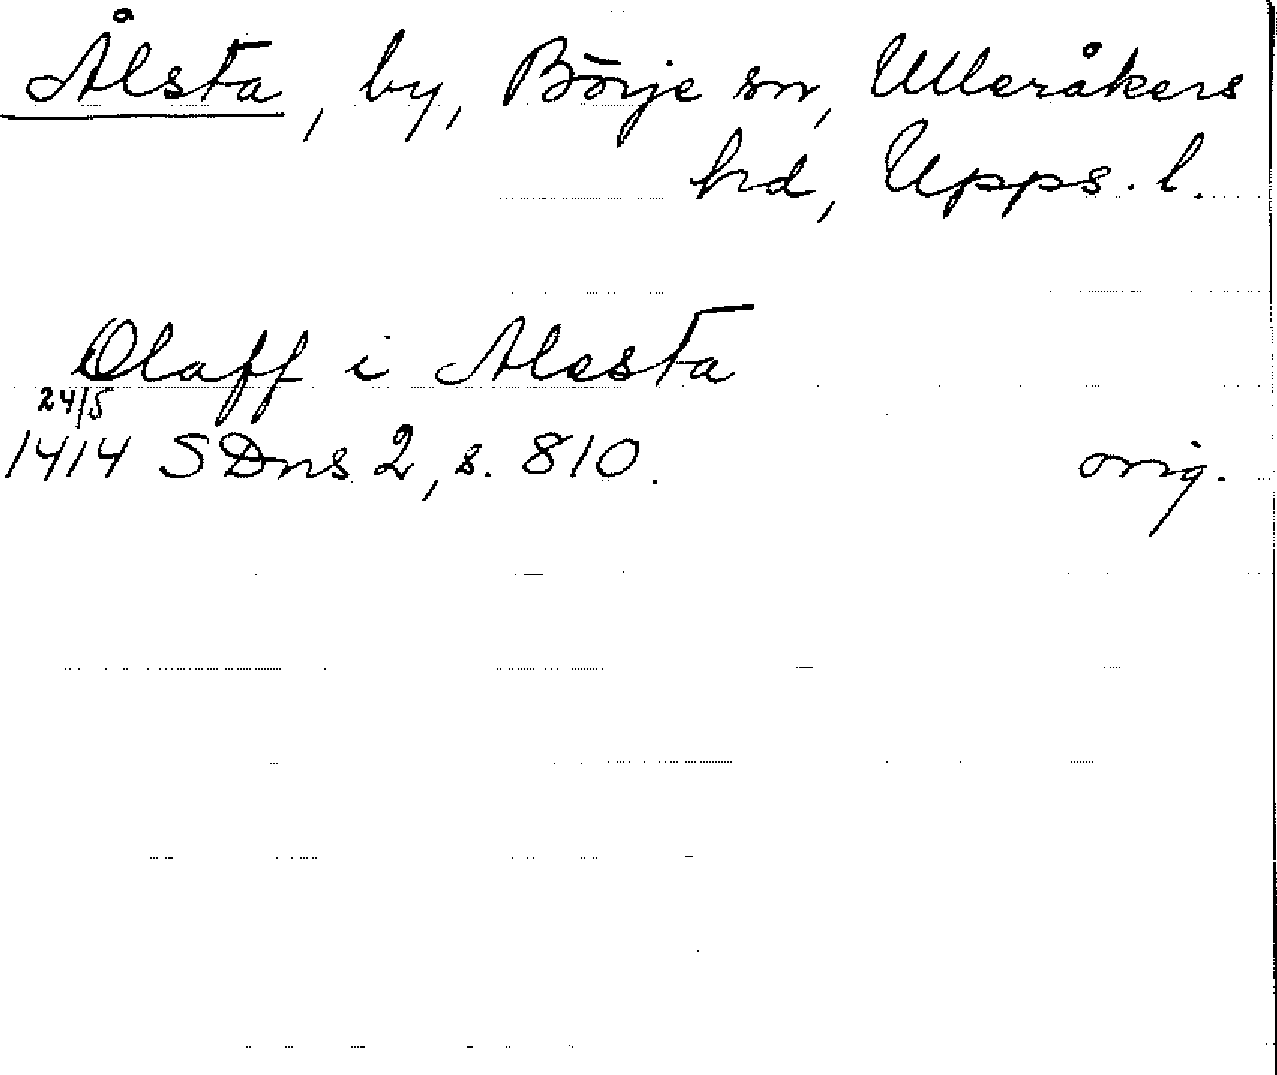 Ålsta, by, Börje sn, Ulleråkers
hd, Upps. l.
Olaff i Alesta
24/5
1414 SDns 2, s. 810.
orig.